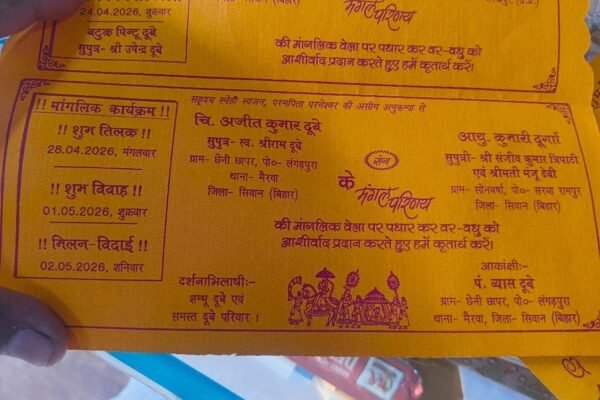 24.04.2026, शुक्रवार
बटुक पिन्टू दूबे
सुपुत्र- श्री उपेन्द्र दूबे
मंगल परिणय
की मांगलिक वेला पर पधार कर वर-वधु को
आशीर्वाद प्रदान करते हुए हमें कृतार्थ करें।
!! मांगलिक कार्यक्रम !!
!! शुभ तिलक !!
28.04.2026, मंगलवार
!! शुभ विवाह !!
01.05.2026, शुक्रवार
!! मिलन-विदाई !!
02.05.2026, शनिवार
सहृदय स्नेही स्वजन, परमपिता परमेश्वर की असीम अनुकम्पा से
चि. अजीत कुमार दूबे
सुपुत्र- स्व. श्रीराम दूबे
ग्राम- छेनी छापर, पो०- लंगड़पुरा
थाना- मैरवा
जिला- सिवान (बिहार)
संग
आयु. कुमारी दुर्गा
सुपुत्री- श्री संजीव कुमार त्रिपाठी
एवं श्रीमती मंजू देवी
ग्राम- सोनवर्षा, पो०- सरवा रामपुर
जिला- सिवान (बिहार)
के मंगल परिणय
की मांगलिक वेला पर पधार कर वर-वधु को
आशीर्वाद प्रदान करते हुए हमें कृतार्थ करें।
दर्शनाभिलाषी:-
शम्भू दूबे एवं
समस्त दूबे परिवार !
आकांक्षी:-
पं. व्यास दूबे
ग्राम- छेनी छापर, पो०- लंगड़पुरा
थाना- मैरवा, जिला- सिवान (बिहार)